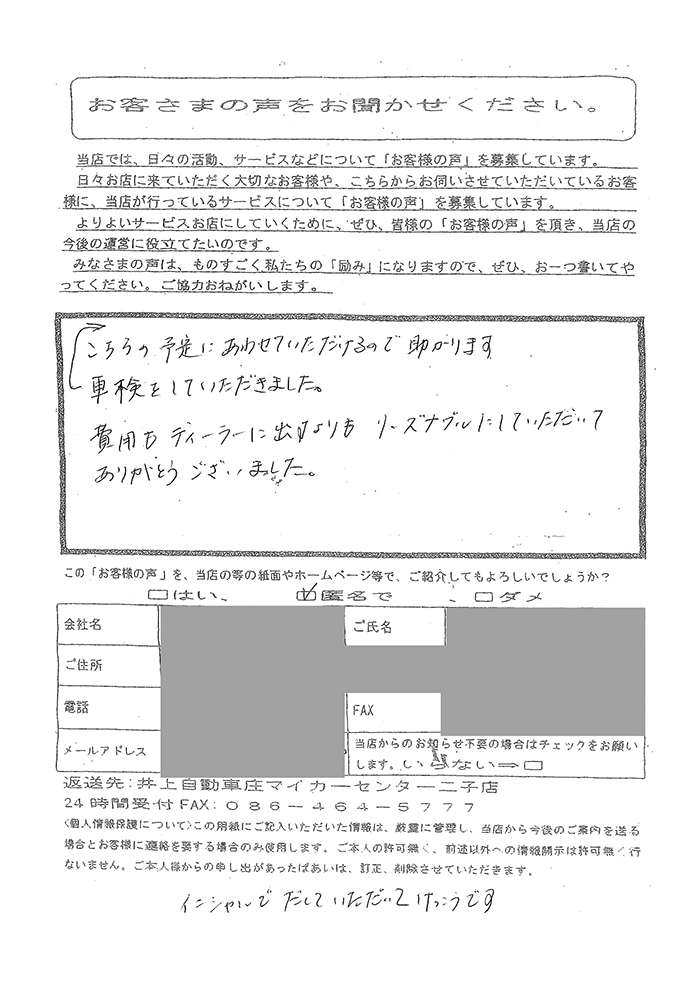 お客さまの声をお聞かせください。
当店では、日々の活動、サービスなどについて「お客様の声」を募集しています。
日々お店に来ていただく大切なお客様や、こちらからお伺いさせていただいているお客
様に、当店が行っているサービスについて「お客様の声」を募集しています。
よりよいサービスお店にしていくために、ぜひ、皆様の「お客様の声」を頂き、当店の
今後の運営に役立てたいのです。
みなさまの声は、ものすごく私たちの「励み」になりますので、ぜひ、お一つ書いてや
ってください。ご協力おねがいします。
こちらの予定にあわせていただけるので助かります
車検をしていただきました。
費用もディーラーに出すよりも リーズナブルにしていただいて
ありがとうございました。
この「お客様の声」を、当店の等の紙面やホームページ等で、ご紹介してもよろしいでしょうか？
□はい、 ☑匿名で 、□ダメ
会社名 ご氏名
ご住所
電話 FAX
メールアドレス 当店からのお知らせ不要の場合はチェックをお願い
します。いらない⇒□
返送先：井上自動車庄マイカーセンター二子店
24時間受付FAX：０８６－４６４－５７７７
〈個人情報保護について〉この用紙にご記入いただいた情報は、厳重に管理し、当店から今後のご案内を送る
場合とお客様に連絡を要する場合のみ使用します。ご本人の許可無く、前述以外への情報開示は許可無く行
ないません。ご本人様からの申し出があったばあいは、訂正、削除させていただきます。
イニシャルでだしていただいてけっこうです